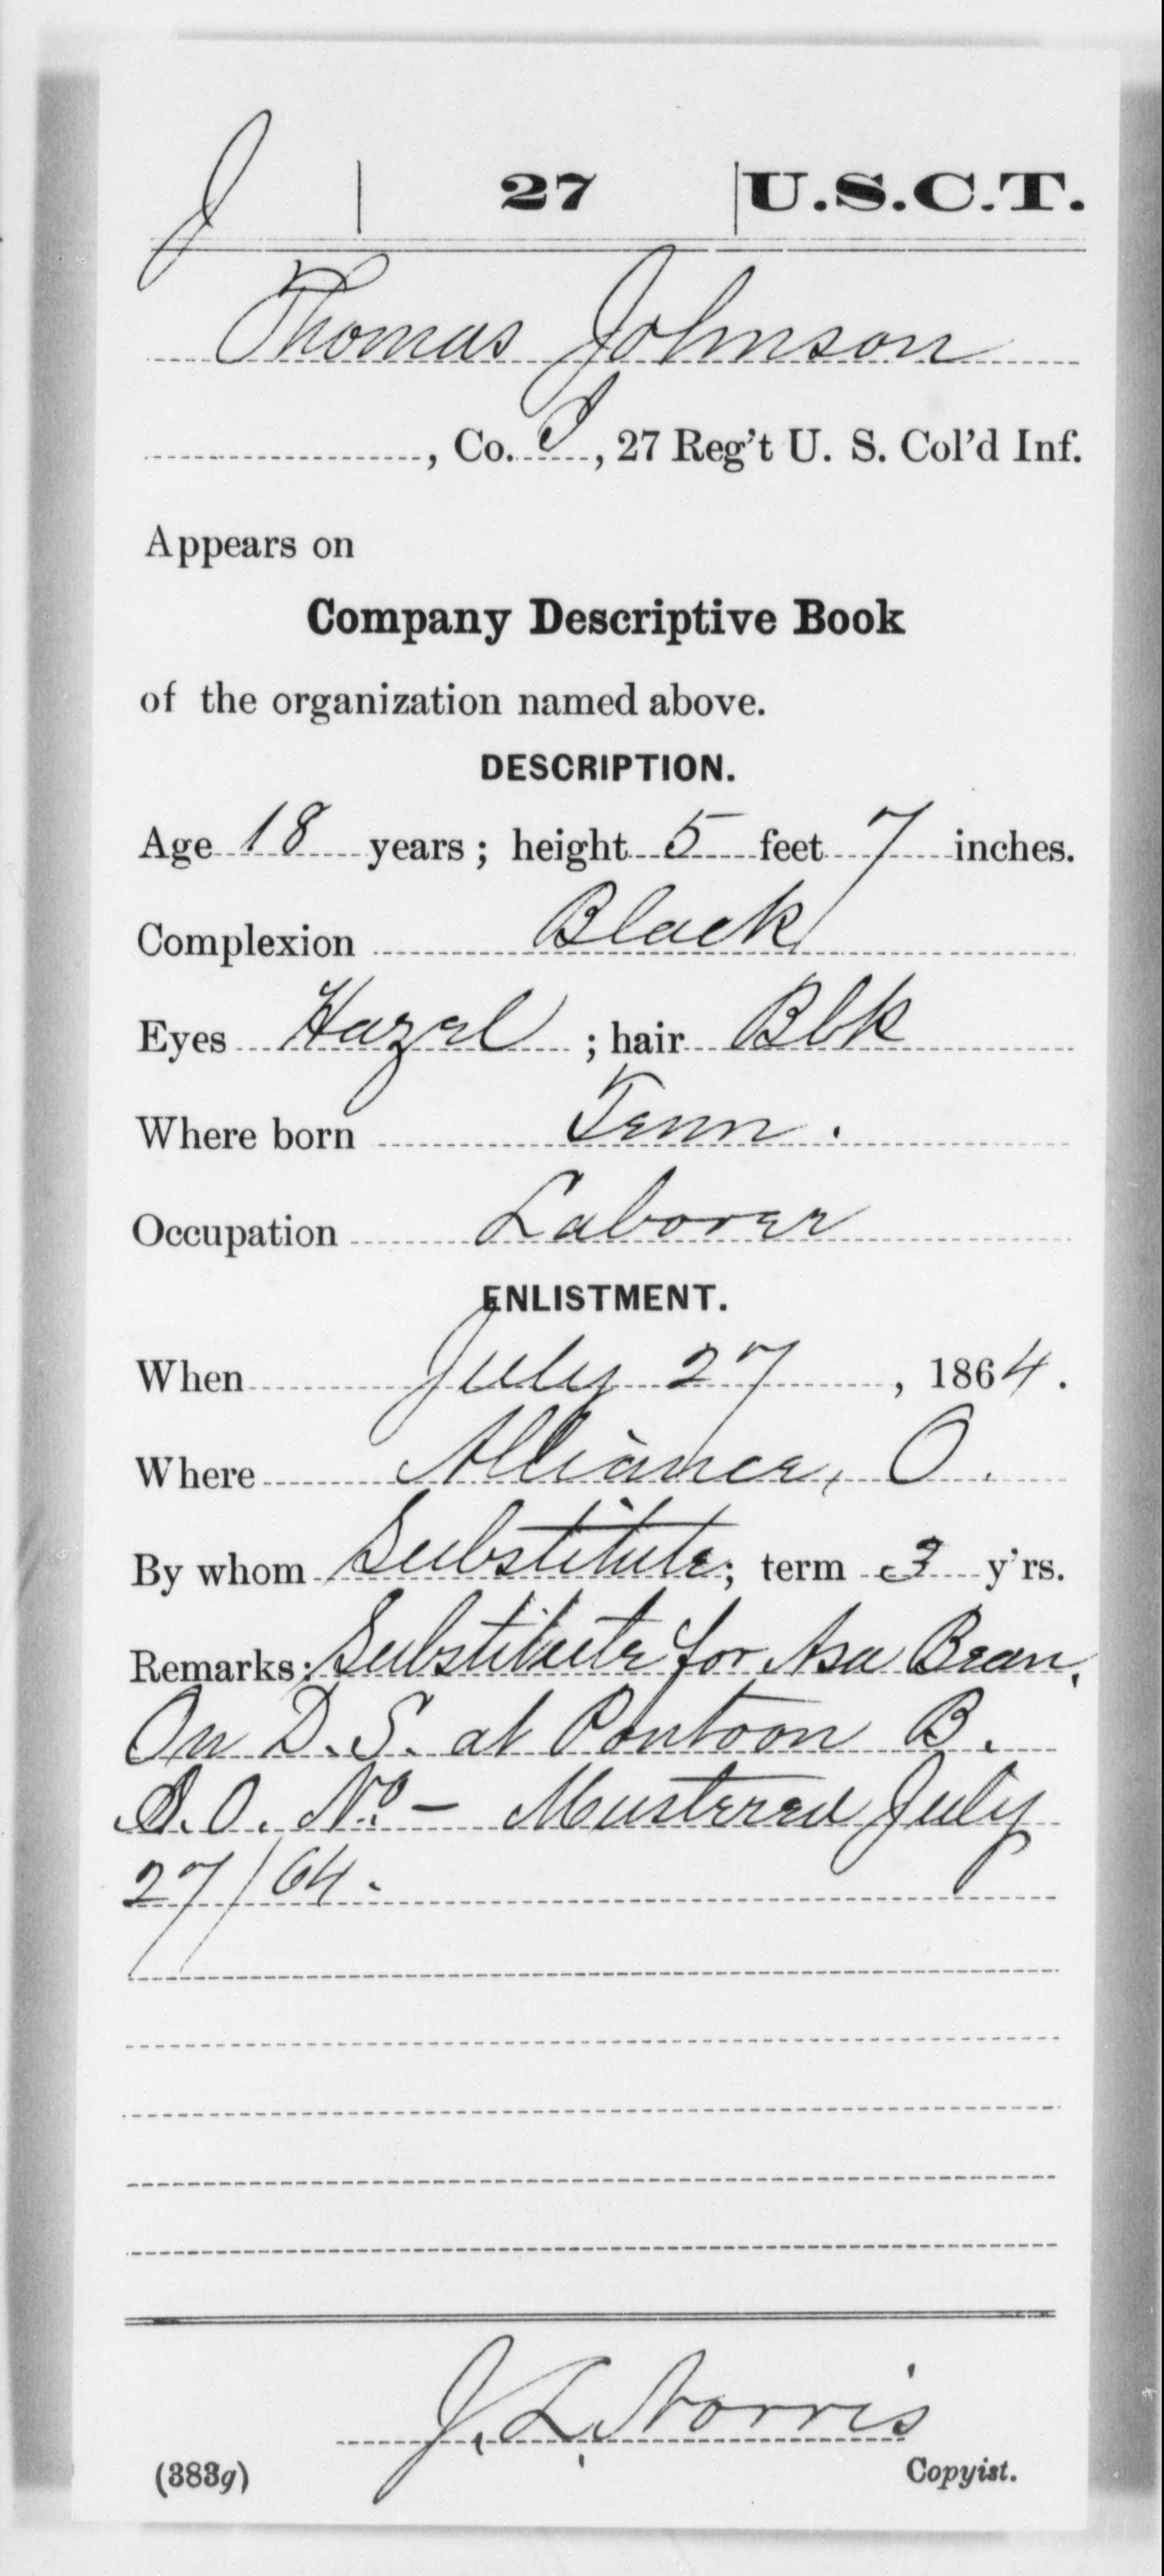 J | 27 | U.S.C.T.
Thomas Johnson
, Co. I, 27 Reg't U. S. Col'd Inf.
Appears on
Company Descriptive Book
of the organization named above.
DESCRIPTION.
Age 18 years; height 5 feet 7 inches.
Complexion Black
Eyes Hazel; hair Blk
Where born Tenn.
Occupation Laborer
ENLISTMENT.
When July 27, 1864.
Where Alliance, O.
By whom Substitute; term 3 y'rs.
Remarks: Substitute for Asa Bean.
On D.S. at Pontoon B.
S.O. No. – Mustered July
27/64.
J. L. Norris
(383g) Copyist.